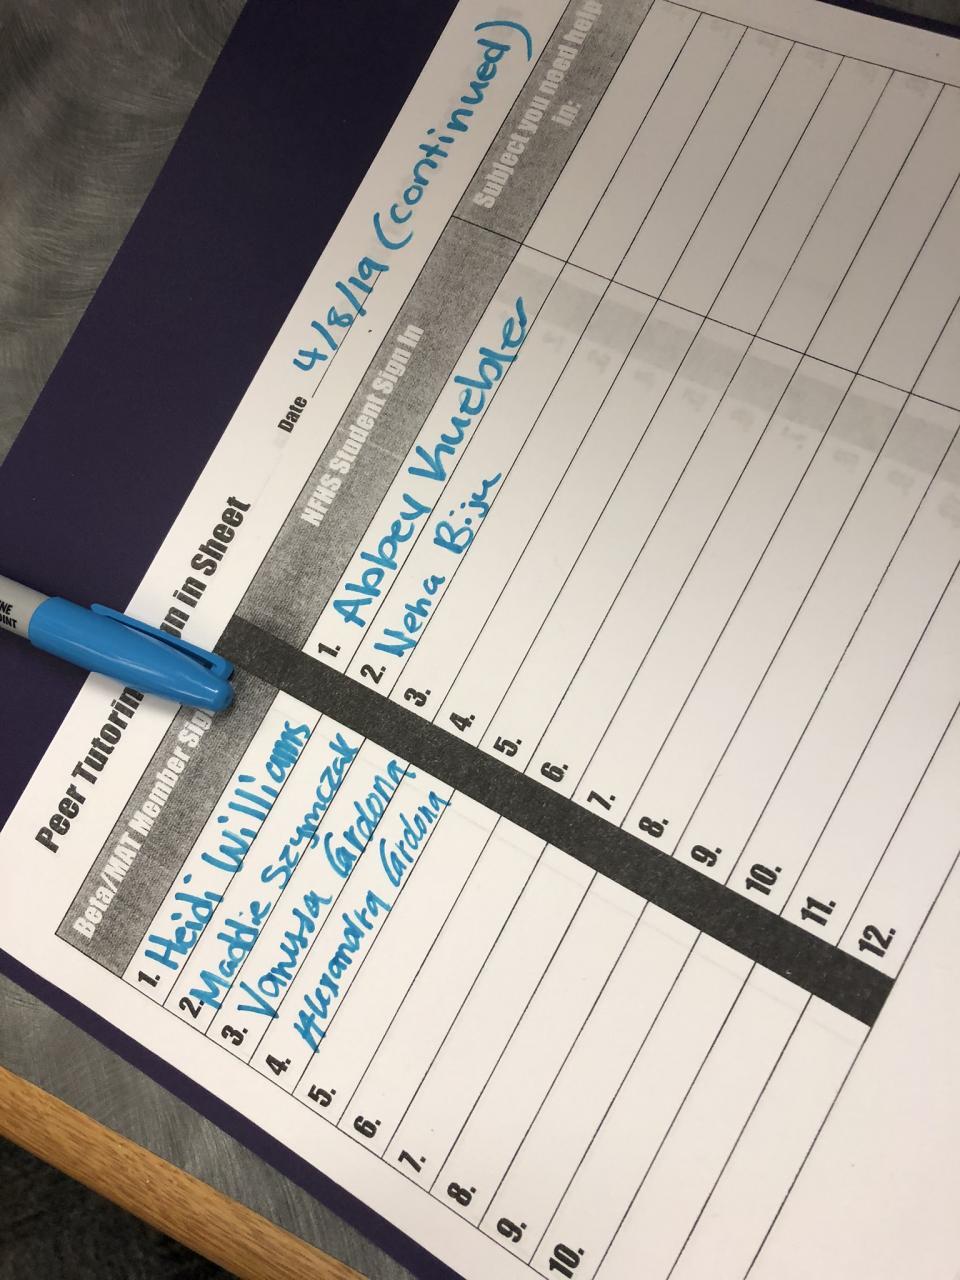 Peer Tutoring Sign in Sheet
Date 4/8/19 (continued)
Beta/MAT Member Sign
NFHS Student Sign In
Subject you need help in:
1. Heidi Williams
2. Maddie Szymczak
3. Vanessa Cardona
4. Alexandra Cardona
5.
6.
7.
8.
9.
10.
1. Abbey Kuebler
2. Neha Biju
3.
4.
5.
6.
7.
8.
9.
10.
11.
12.